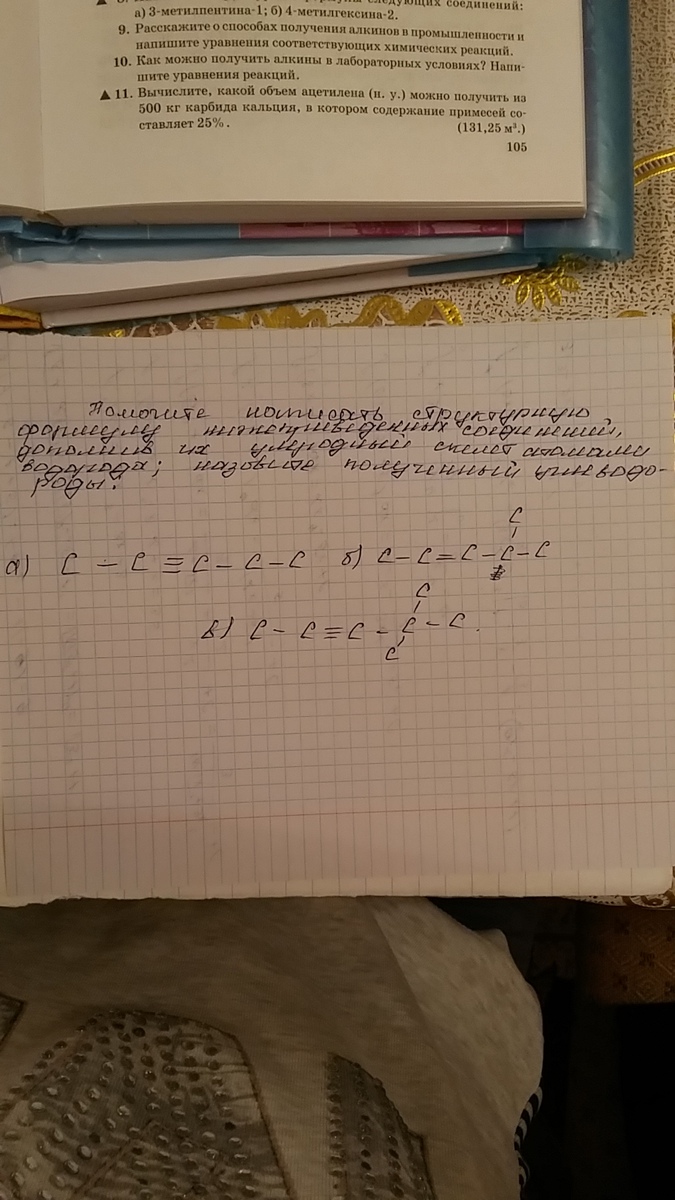 следующих соединений:
а) 3-метилпентина-1; б) 4-метилгексина-2.
9. Расскажите о способах получения алкинов в промышленности и
напишите уравнения соответствующих химических реакций.
10. Как можно получить алкины в лабораторных условиях? Напи-
шите уравнения реакций.
▲ 11. Вычислите, какой объем ацетилена (н. у.) можно получить из
500 кг карбида кальция, в котором содержание примесей со-
ставляет 25%. (131,25 м³.)
105
Помогите написать структурную
формулу нижеприведенных соединений,
дополнив их углеродный скелет атомами
водорода; назовите полученный углеводо-
роды:
C
а) C - C ≡ C - C - C б) C - C = C - C - C
C
в) C - C ≡ C - C - C.
C